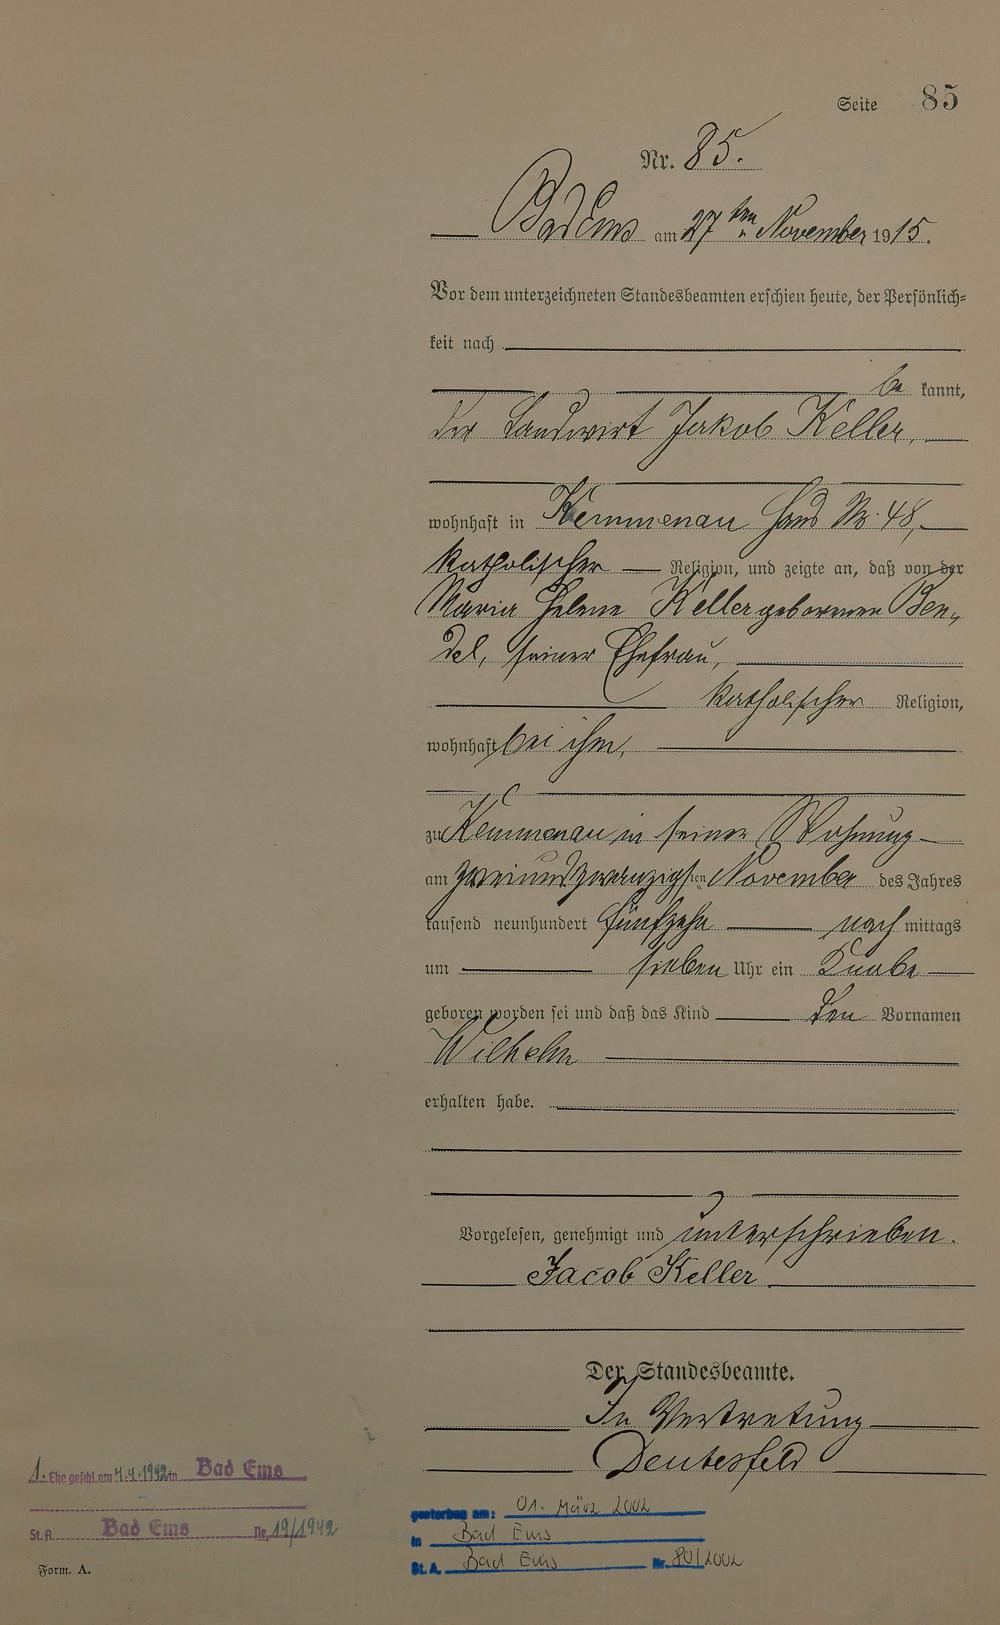 Seite 85
Nr. 85.
Bad Ems am 27ten November 1915.
Vor dem unterzeichneten Standesbeamten erschien heute, der Persönlich=
keit nach
be kannt,
der Landwirt Jakob Keller,
wohnhaft in Kemmenau Haus Nr. 48,
katholischer Religion, und zeigte an, daß von der
Maria Helene Keller gebornen Ben-
del, seiner Ehefrau,
katholischer Religion,
wohnhaft bei ihm,
zu Kemmenau in seiner Wohnung
am zweiundzwanzigsten November des Jahres
tausend neunhundert fünfzehn nach mittags
um sieben Uhr ein Knabe
geboren worden sei und daß das Kind den Vornamen
Wilhelm
erhalten habe.
Vorgelesen, genehmigt und unterschrieben.
Jacob Keller
Der Standesbeamte.
In Vertretung
Deutesfeld
1. Ehe geschl. am 4.4.1942 in Bad Ems
St. A. Bad Ems Nr. 19/1942
gestorben am: 01. März 2002
in Bad Ems
St. A. Bad Ems Nr. 80/2002
Form. A.